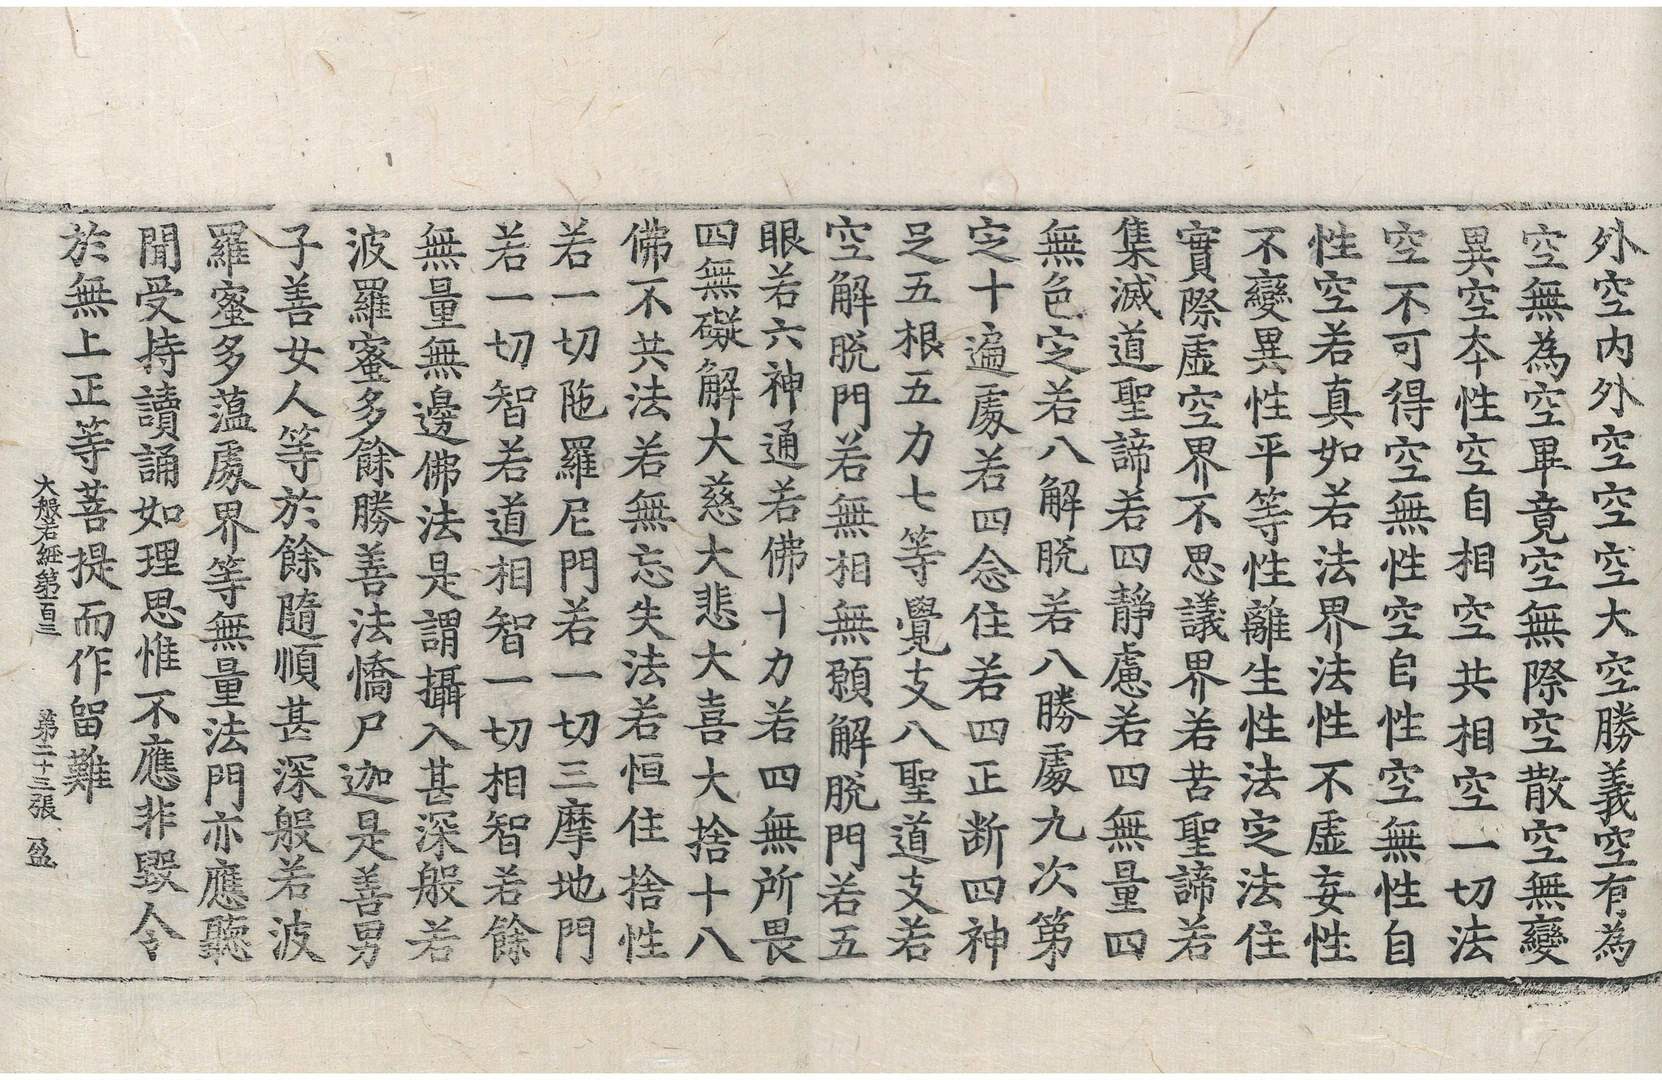 外空内外空空空大空勝義空有為
空無為空畢竟空無際空散空無變
異空本性空自相空共相空一切法
空不可得空無性空自性空無性自
性空若真如若法界法性不虛妄性
不變異性平等性離生性法定法住
實際虛空界不思議界若苦聖諦若
集滅道聖諦若四靜慮若四無量四
無色定若八解脫若八勝處九次第
定十遍處若四念住若四正断四神
足五根五力七等覺支八聖道支若
空解脫門若無相無願解脫門若五
眼若六神通若佛十力若四無所畏
四無礙解大慈大悲大喜大捨十八
佛不共法若無忘失法若恒住捨性
若一切陁羅尼門若一切三摩地門
若一切智若道相智一切相智若餘
無量無邊佛法是謂攝入甚深般若
波羅蜜多餘勝善法憍尸迦是善男
子善女人等於餘隨順甚深般若波
羅蜜多蘊處界等無量法門亦應聽
聞受持讀誦如理思惟不應非毀令
於無上正等菩提而作留難
大般若經第一百三　第二十三張　盈